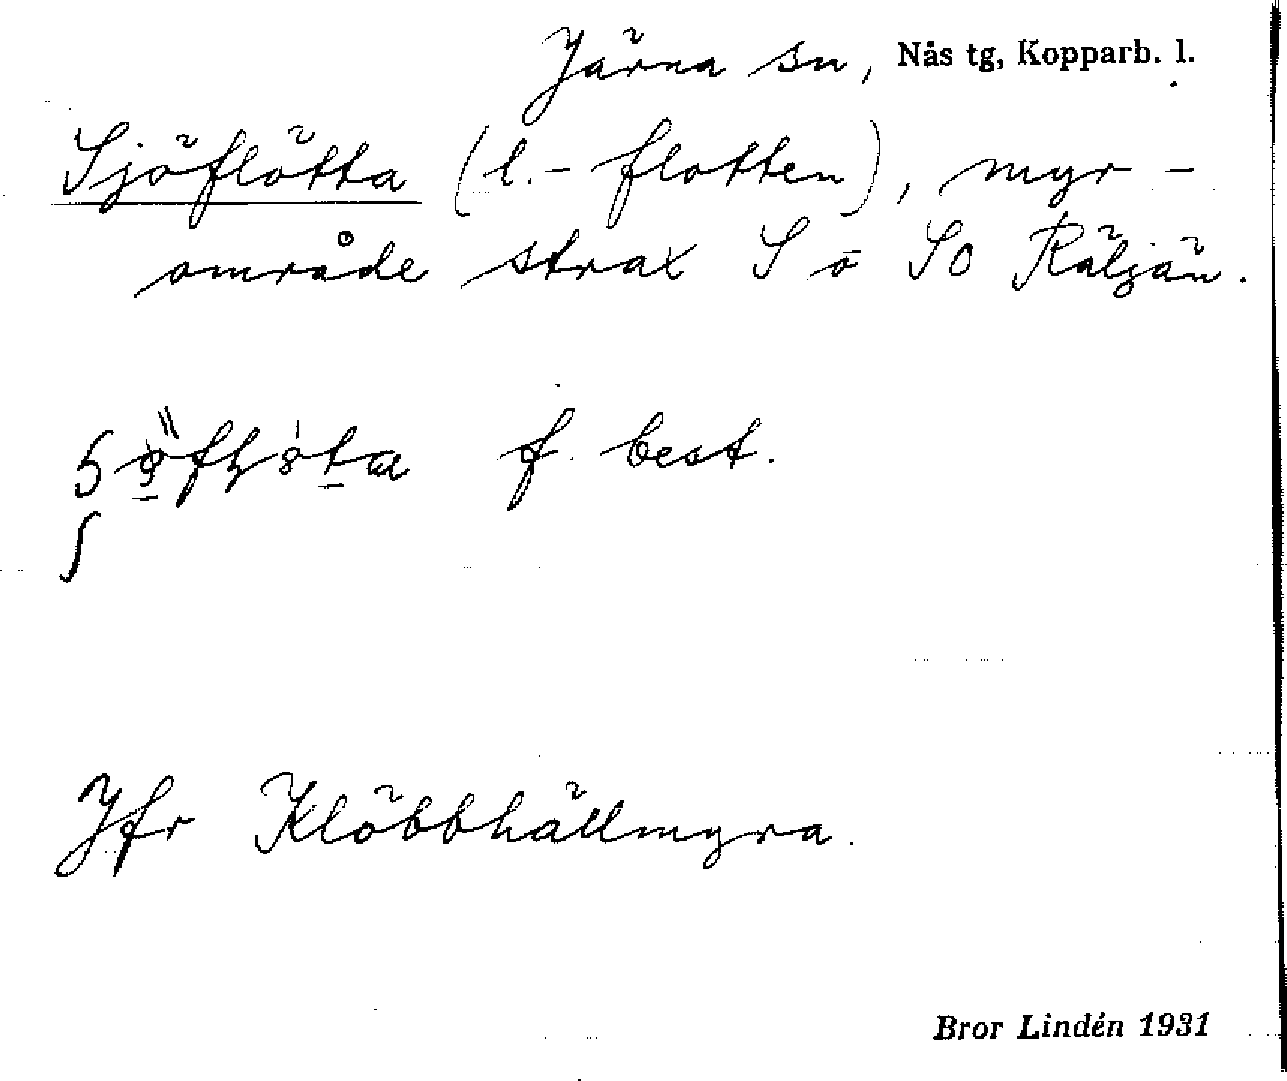 Järna sn, Nås tg, Kopparb. l.
Sjöflötta (l.- flotten), myr-
område strax S o SO Räljän.
f. best.
Jfr Klöbbhällmyra.
Bror Lindén 1931